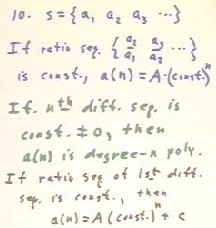 10. S = { a₁ a₂ a₃ ⋯ }
If ratio seq. { a₂/a₁ a₃/a₂ ⋯ }
is const., a(n) = A·(const.)ⁿ
If nth diff. seq. is
const. ≠ 0, then
a(n) is degree-n poly.
If ratio seq of 1st diff.
seq. is const., then
a(n) = A (const.)ⁿ + c